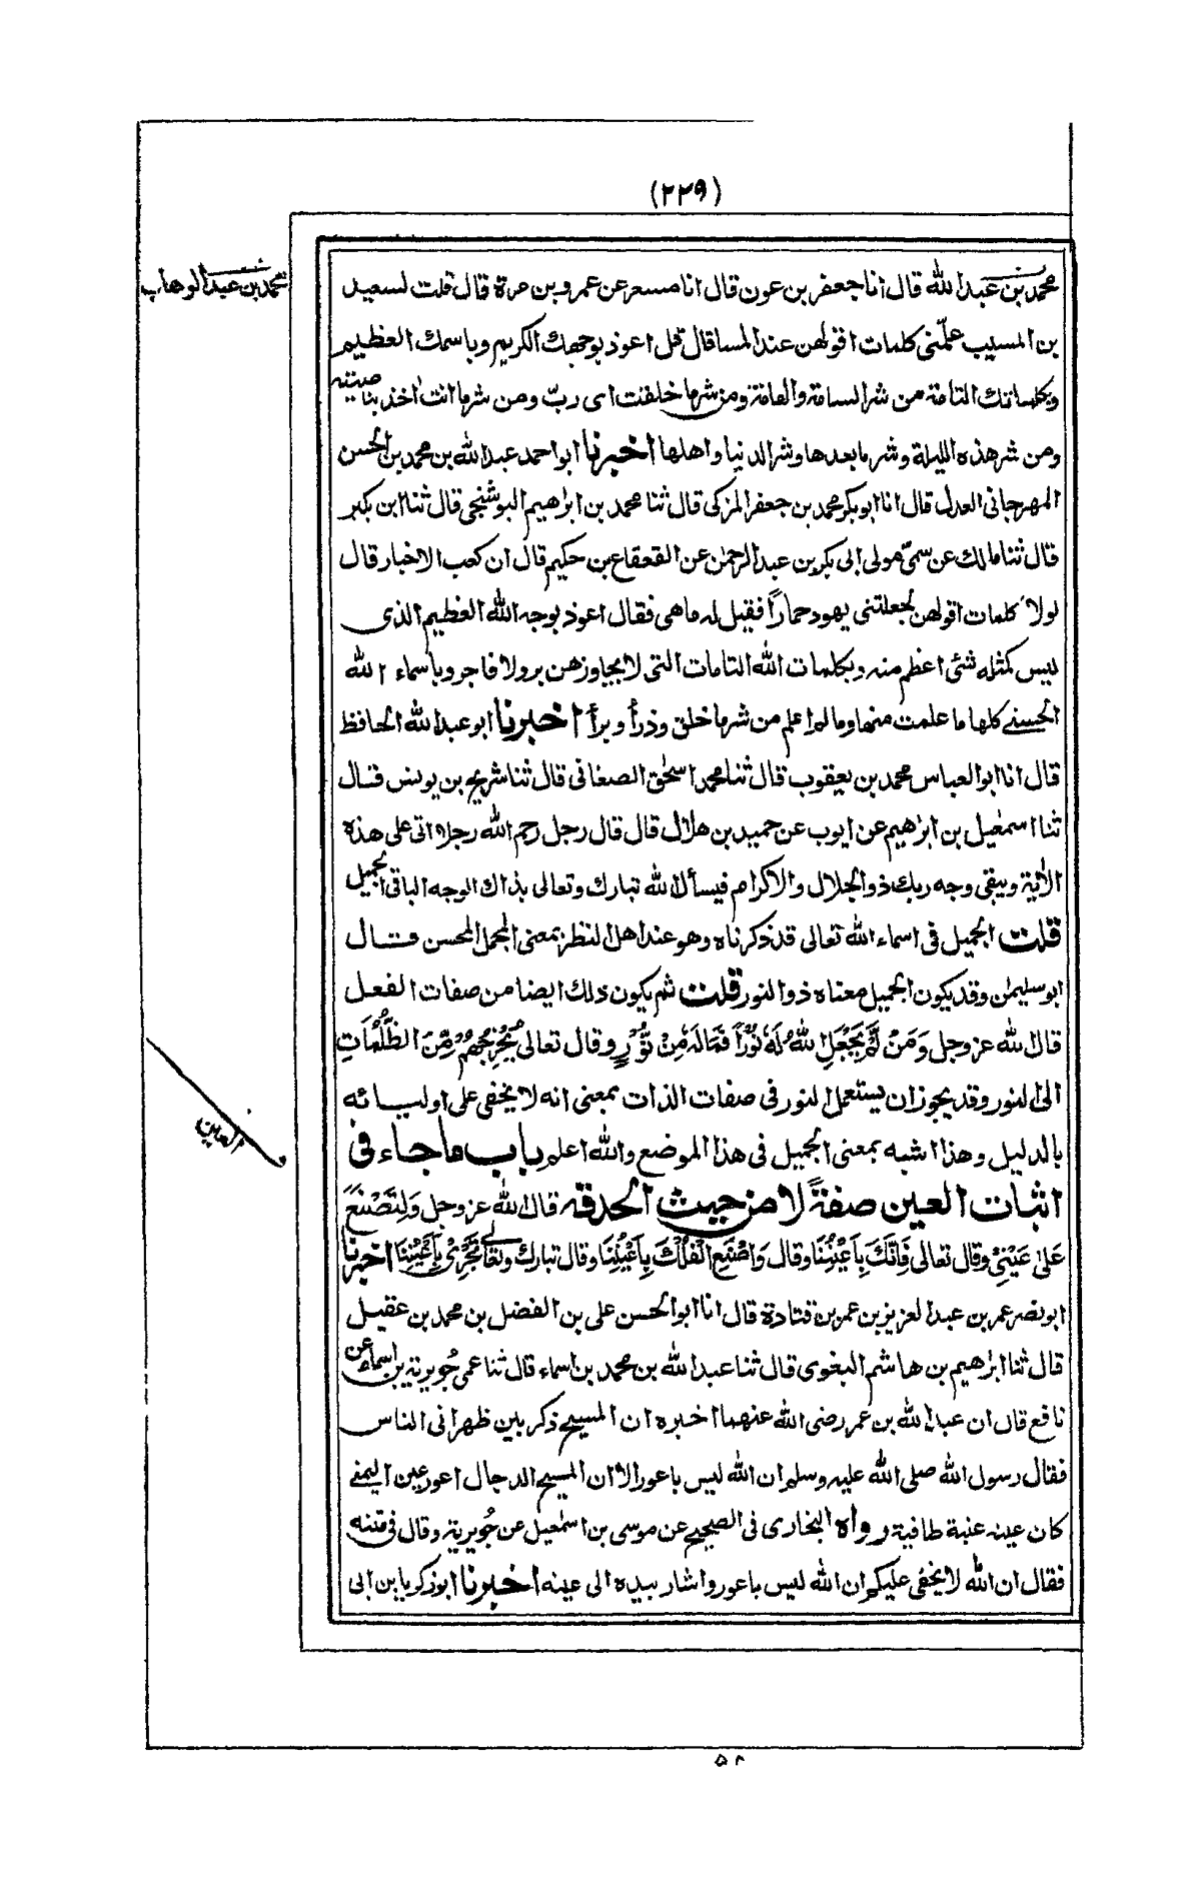 (٢٢٩)
محمد بن عبدالوهاب
محمد بن عبد الله قال انا جعفر بن عون قال انا مسعر عن عمرو بن مرة قال قلت لسعيد
بن المسيب علّمنى كلمات اقولهن عند المسا قال قل اعوذ بوجهك الكريم وباسمك العظيم
وبكلماتك التامة من شر السامة والعامة ومن شر ما خلقت اى ربّ ومن شر ما انت اٰخذ بناصيته
ومن شر هذه الليلة وشر ما بعدها وشر الدنيا واهلها اخبرنا ابو احمد عبد الله بن محمد بن الحسن
المهرجانى العدل قال انا ابو بكر محمد بن جعفر المزكى قال ثنا محمد بن ابرٰهيم البوشنجى قال ثنا ابن بكير
قال ثنا مالك عن سمىّ مولى ابى بكر بن عبد الرحمٰن عن القعقاع بن حكيم قال ان كعب الاخبار قال
لولا كلمات اقولهن لجعلتنى يهود حماراً فقيل له ما هى فقال اعوذ بوجه الله العظيم الذى
ليس كمثله شئى اعظم منه وبكلمات الله التامات التى لا يجاوزهن بر ولا فاجر وباسماء الله
الحسنے كلها ما علمت منها وما لم اعلم من شر ما خلق وذرأ وبرأ اخبرنا ابو عبد الله الحافظ
قال انا ابو العباس محمد بن يعقوب قال ثنا محمد اسحٰق الصغانى قال ثنا شريح بن يونس قال
ثنا اسمٰعيل بن ابرٰهيم عن ايوب عن حميد بن هلال قال قال رجل رحم الله رجلا اتى على هذه
الاٰية ويبقى وجه ربك ذو الجلال والاكرام فيسأل الله تبارك وتعالى بذاك الوجه الباقى الجميل
قلت الجميل فى اسماء الله تعالى قد ذكرناه وهو عند اهل النظر بمعنى المجمل المحسن قال
ابو سليمٰن وقد يكون الجميل معناه ذو النور قلت ثم يكون ذلك ايضا من صفات الفعل
قال الله عز وجل وَمَنْ لَّمْ يَجْعَلِ اللهُ لَهٗ نُوْرًا فَمَالَهٗ مِنْ نُّوْرٍ وقال تعالى يُخْرِجُهُمْ مِّنَ الظُّلُمَاتِ
الى النور وقد يجوز ان يستعمل النور فى صفات الذات بمعنى انه لا يخفى على اوليائه
بالدليل وهذا اشبه بمعنى الجميل فى هذا الموضع والله اعلم باب ما جاء فى
العين
اثبات العين صفةً لا من حيث الحدقه قال الله عز وجل وَلِتُصْنَعَ
عَلٰى عَيْنِىْ وقال تعالى فَاِنَّكَ بِاَعْيُنِنَا وقال وَاصْنَعِ الْفُلْكَ بِاَعْيُنِنَا وقال تبارك وتعالى تَجْرِىْ بِاَعْيُنِنَا اخبرنا
ابو نصر عمر بن عبد العزيز بن عمر بن قتادة قال انا ابو الحسن على بن الفضل بن محمد بن عقيل
قال ثنا ابرٰهيم بن هاشم البغوى قال ثنا عبد الله بن محمد بن اسماء قال ثنا عمى جُويرية بن اسماء عن
نافع قال ان عبد الله بن عمر رضى الله عنهما اخبره ان المسيح ذكر بين ظهرانى الناس
فقال رسول الله صلى الله عليه وسلم ان الله ليس باعور الا ان المسيح الدجال اعور عين اليمنے
كان عينه عنبة طافية رواه البخارى فى الصحيح عن موسى بن اسمٰعيل عن جُويرية وقال فى متنه
فقال ان الله لا يخفى عليكم ان الله ليس باعور واشار بيده الى عينه اخبرنا ابو زكريا بن ابى
٥٨